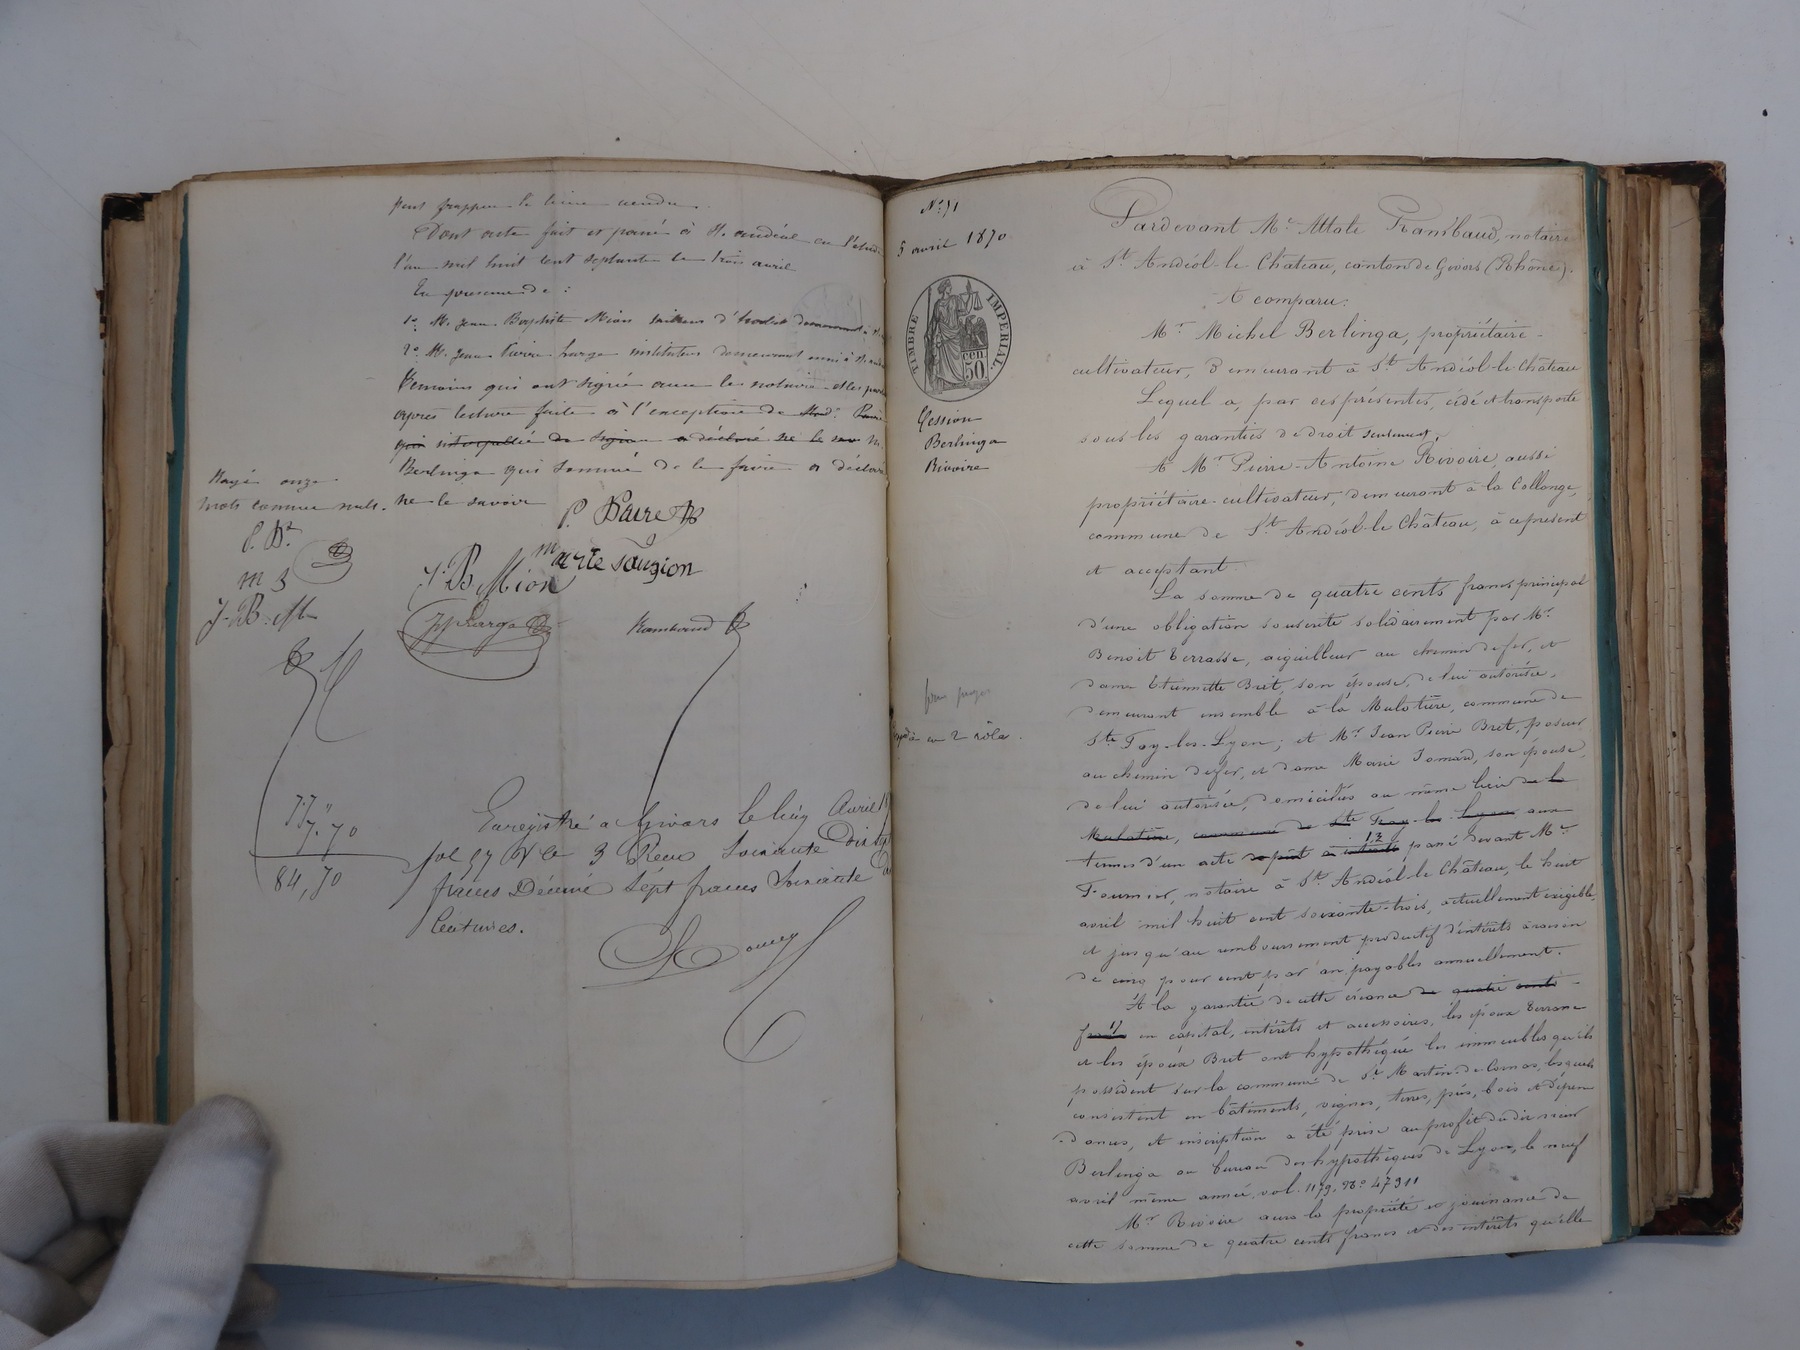 peut frapper le bien vendu.
Dont acte fait et passé à St. andéol en l'étude
l'an mil huit cent septante le trois avril
En presence de :
1º M. Jean Baptiste Mion
2º M. Jean Pierre Large instituteur demeurant aussi à St. andéol
Temoins qui ont signé avec le notaire et les parties
après lecture faite à l'exception de Mad.e
qui interpellée de signer a déclaré ne le savoir M.
Berlinga qui sommé de le faire a déclaré
ne le savoir
Rayé onze
mots comme nuls.
P. D.
m S
J-B. M
P. Daire
marie saugion
J. B. Mion
JP Large
Rambaud
77. "
7. 70
84,70
Enregistré a Givors le cinq Avril
fol 57 V Ce 3 Recu Soixante Dix sept
francs Décimé Sept francs Soixante
Centimes.
Nº 71
5 avril 1870
TIMBRE IMPERIAL.
50 cen.
Cession
Berlinga
Rivoire
en 2 rôles.
Pardevant Me. Attale Rambaud, notaire
à St. Andéol-le-Château, canton de Givors (Rhône).
A comparu:
Mr. Michel Berlinga, propriétaire-
cultivateur, demeurant à St. Andéol-le-Château
Lequel a, par ces présentes, cédé et transporté
sous les garanties de droit seulement,
A Mr. Pierre-Antoine Rivoire, aussi
propriétaire-cultivateur, demeurant à la Collonge,
commune de St. Andéol-le-Château, à ce présent
et acceptant.
La somme de quatre cents francs principal
d'une obligation souscrite solidairement par Mr.
Benoit Terrasse, aiguilleur au chemin de fer, et
dame Etiennette Bret, son épouse, de lui autorisée,
demeurant ensemble à la Mulatière, commune de
Ste Foy-les-Lyon; et Mr. Jean Pierre Bret, poseur
au chemin de fer, et dame Marie Jomard, son épouse,
de lui autorisée, domiciliés au même lieu de la
Mulatière, commune de Ste Foy-les-Lyon aux
termes d'un acte passé devant Me.
Fournier, notaire à St. Andéol-le-Château, le huit
avril mil huit cent soixante-trois, actuellement exigible,
et jusqu'au remboursement productif d'intérêts à raison
de cinq pour cent par an, payables annuellement.
A la garantie de cette créance de quatre cents
en capital, intérêts et accessoires, les époux Terrasse
et les époux Bret ont hypothéqué les immeubles qu'ils
possèdent sur la commune de St. Martin-de-Cornas, lesquels
consistent en bâtiments, vignes, terres, prés, bois et dépen
-dances, et inscription a été prise au profit dudit sieur
Berlinga au bureau des hypothèques de Lyon, le neuf
avril même année, vol. 1179, Nº 47311
Mr. Rivoire aura la propriété et jouissance de
cette somme de quatre cents francs et des intérêts qu'elle